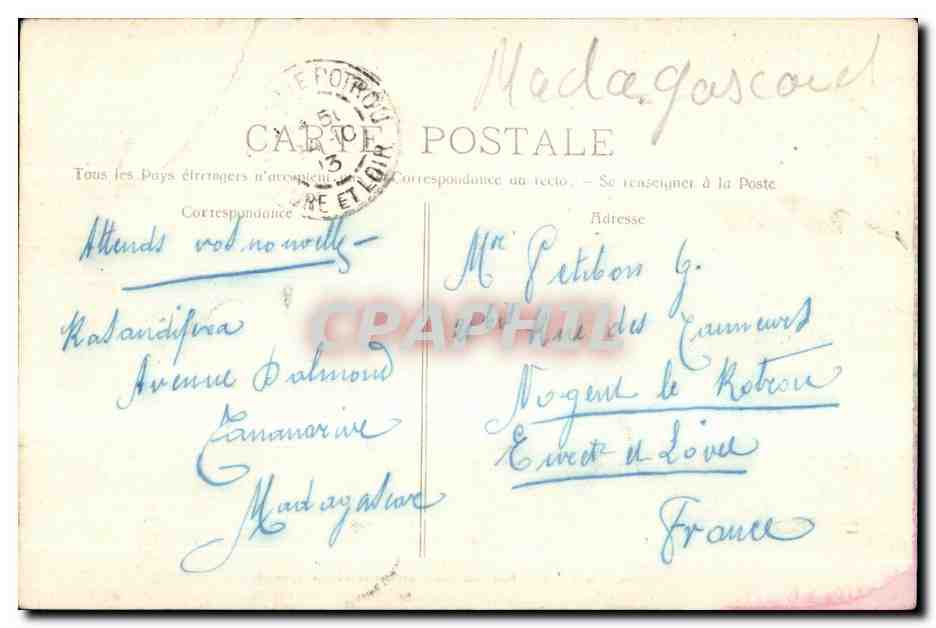 Madagascard
LE ROTROU
5
10
13
RE ET LOIR
CARTE POSTALE
Tous les Pays étrangers n'acceptent Correspondance au recto. - Se renseigner à la Poste
Correspondance
Adresse
Attends vot nouvelle -
Ratandifera
Avenue Dalmond
Tananarive
Madagascar
Mr Petibon G.
Rue des Tanneurs
Nogent le Rotrou
Eure et Loire
France
CPAPHIL